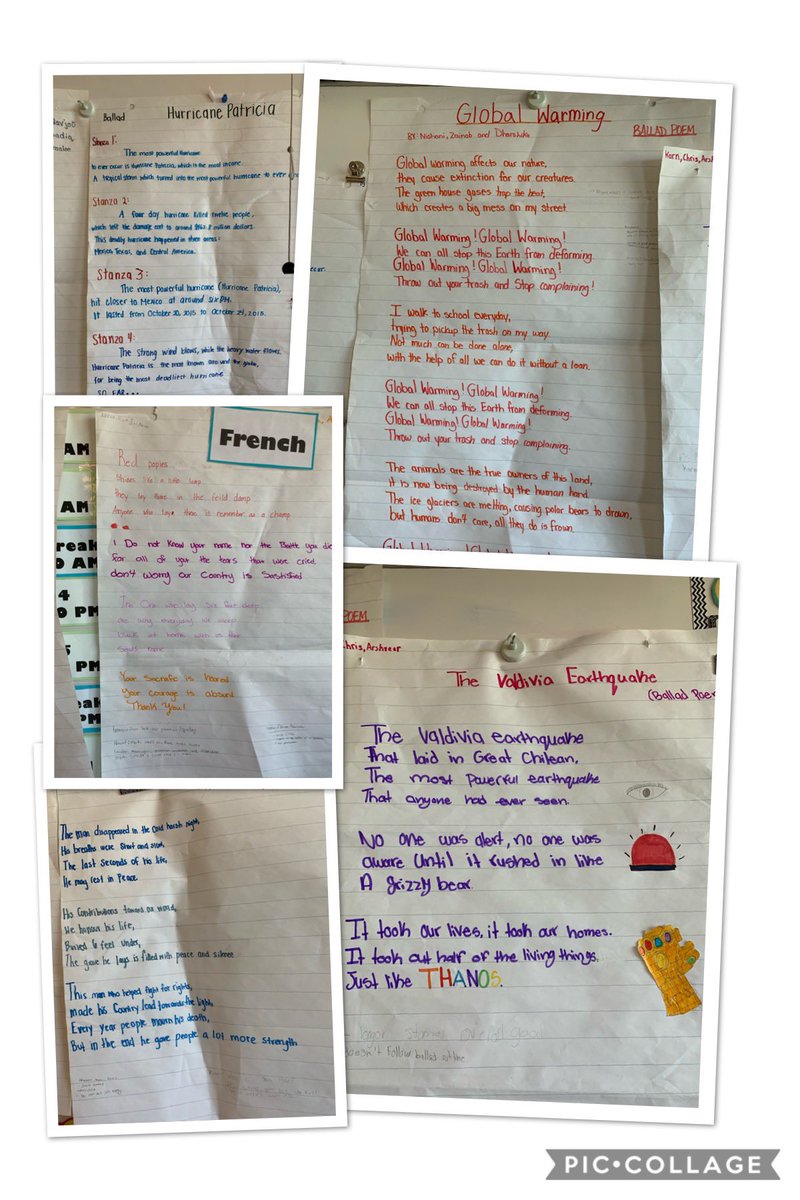 Ballad
Hurricane Patricia
Stanza 1:
The most powerful Hurricane
to ever occur is Hurricane Patricia, which is the most insane.
A tropical storm which turned into the most powerful hurricane to ever
Stanza 2:
A four day hurricane killed twelve people,
which left the damage cost to around million dollars.
This deadly hurricane happened in these areas:
Mexico, Texas, and Central America.
Stanza 3:
The most powerful hurricane (Hurricane Patricia),
hit closer to Mexico at around
It lasted from October 20, 2015 to October 24, 2015.
Stanza 4:
The strong wind blows, while the heavy water flows.
Hurricane Patricia is the most known around the globe,
for being the most deadliest hurricane
SO FAR...
Global Warming
BY: Nishani, Zainab and Dharshika
BALLAD POEM
Karn, Chris, Arsh
Global warming affects our nature,
they cause extinction for our creatures.
The green house gases trap the heat,
which creates a big mess on my street.
Global Warming! Global Warming!
We can all stop this Earth from deforming.
Global Warming! Global Warming!
Throw out your trash and Stop complaining!
I walk to school everyday,
trying to pickup the trash on my way.
Not much can be done alone,
with the help of all we can do it without a loan.
Global Warming! Global Warming!
We can all stop this Earth from deforming.
Global Warming! Global Warming!
Throw out your trash and stop complaining.
The animals are the true owners of this land,
it is now being destroyed by the human hand.
The ice glaciers are melting, causing polar bears to drown,
but humans don't care, all they do is frown.
Global Warming! Global Warming!
French
AM
AM
reak
0 AM
4
0 PM
5
PM
eak
PM
Red popies
Shines like a little lamp
They lay there in the feild damp
Anyone who lays there is remember as a champ
I Do not know your name nor the Battle you die
for all of you the tears that were cried
don't worry our Country is Sastisfied
The One who lay Six feet deep
are why everyday we weep
back at home with us their
Souls roam
Your Sacrafic is Hored
Your courage is absurd
Thank You!
The man disappeared in the cold harsh night,
His breaths were Short and slow,
The last Seconds of his life,
He may rest in Peace.
His Contributions towards our world,
We honour his life,
Buried 6 feet under,
The gave he lays is filled with peace and silence
This man who helped fight for rights,
made his Country lead towards the light,
Every year people mourn his death,
But in the end he gave people a lot more strength
POEM
Chris, Arshveer
The Valdivia Earthquake
(Ballad Poem
The Valdivia earthquake
That laid in Great Chilean,
The most powerful earthquake
That anyone had ever seen.
No one was alert, no one was
aware until it rushed in like
A grizzly bear.
It took our lives, it took our homes.
It took out half of the living things,
Just like THANOS.
doesn't follow ballad outline
PIC•COLLAGE